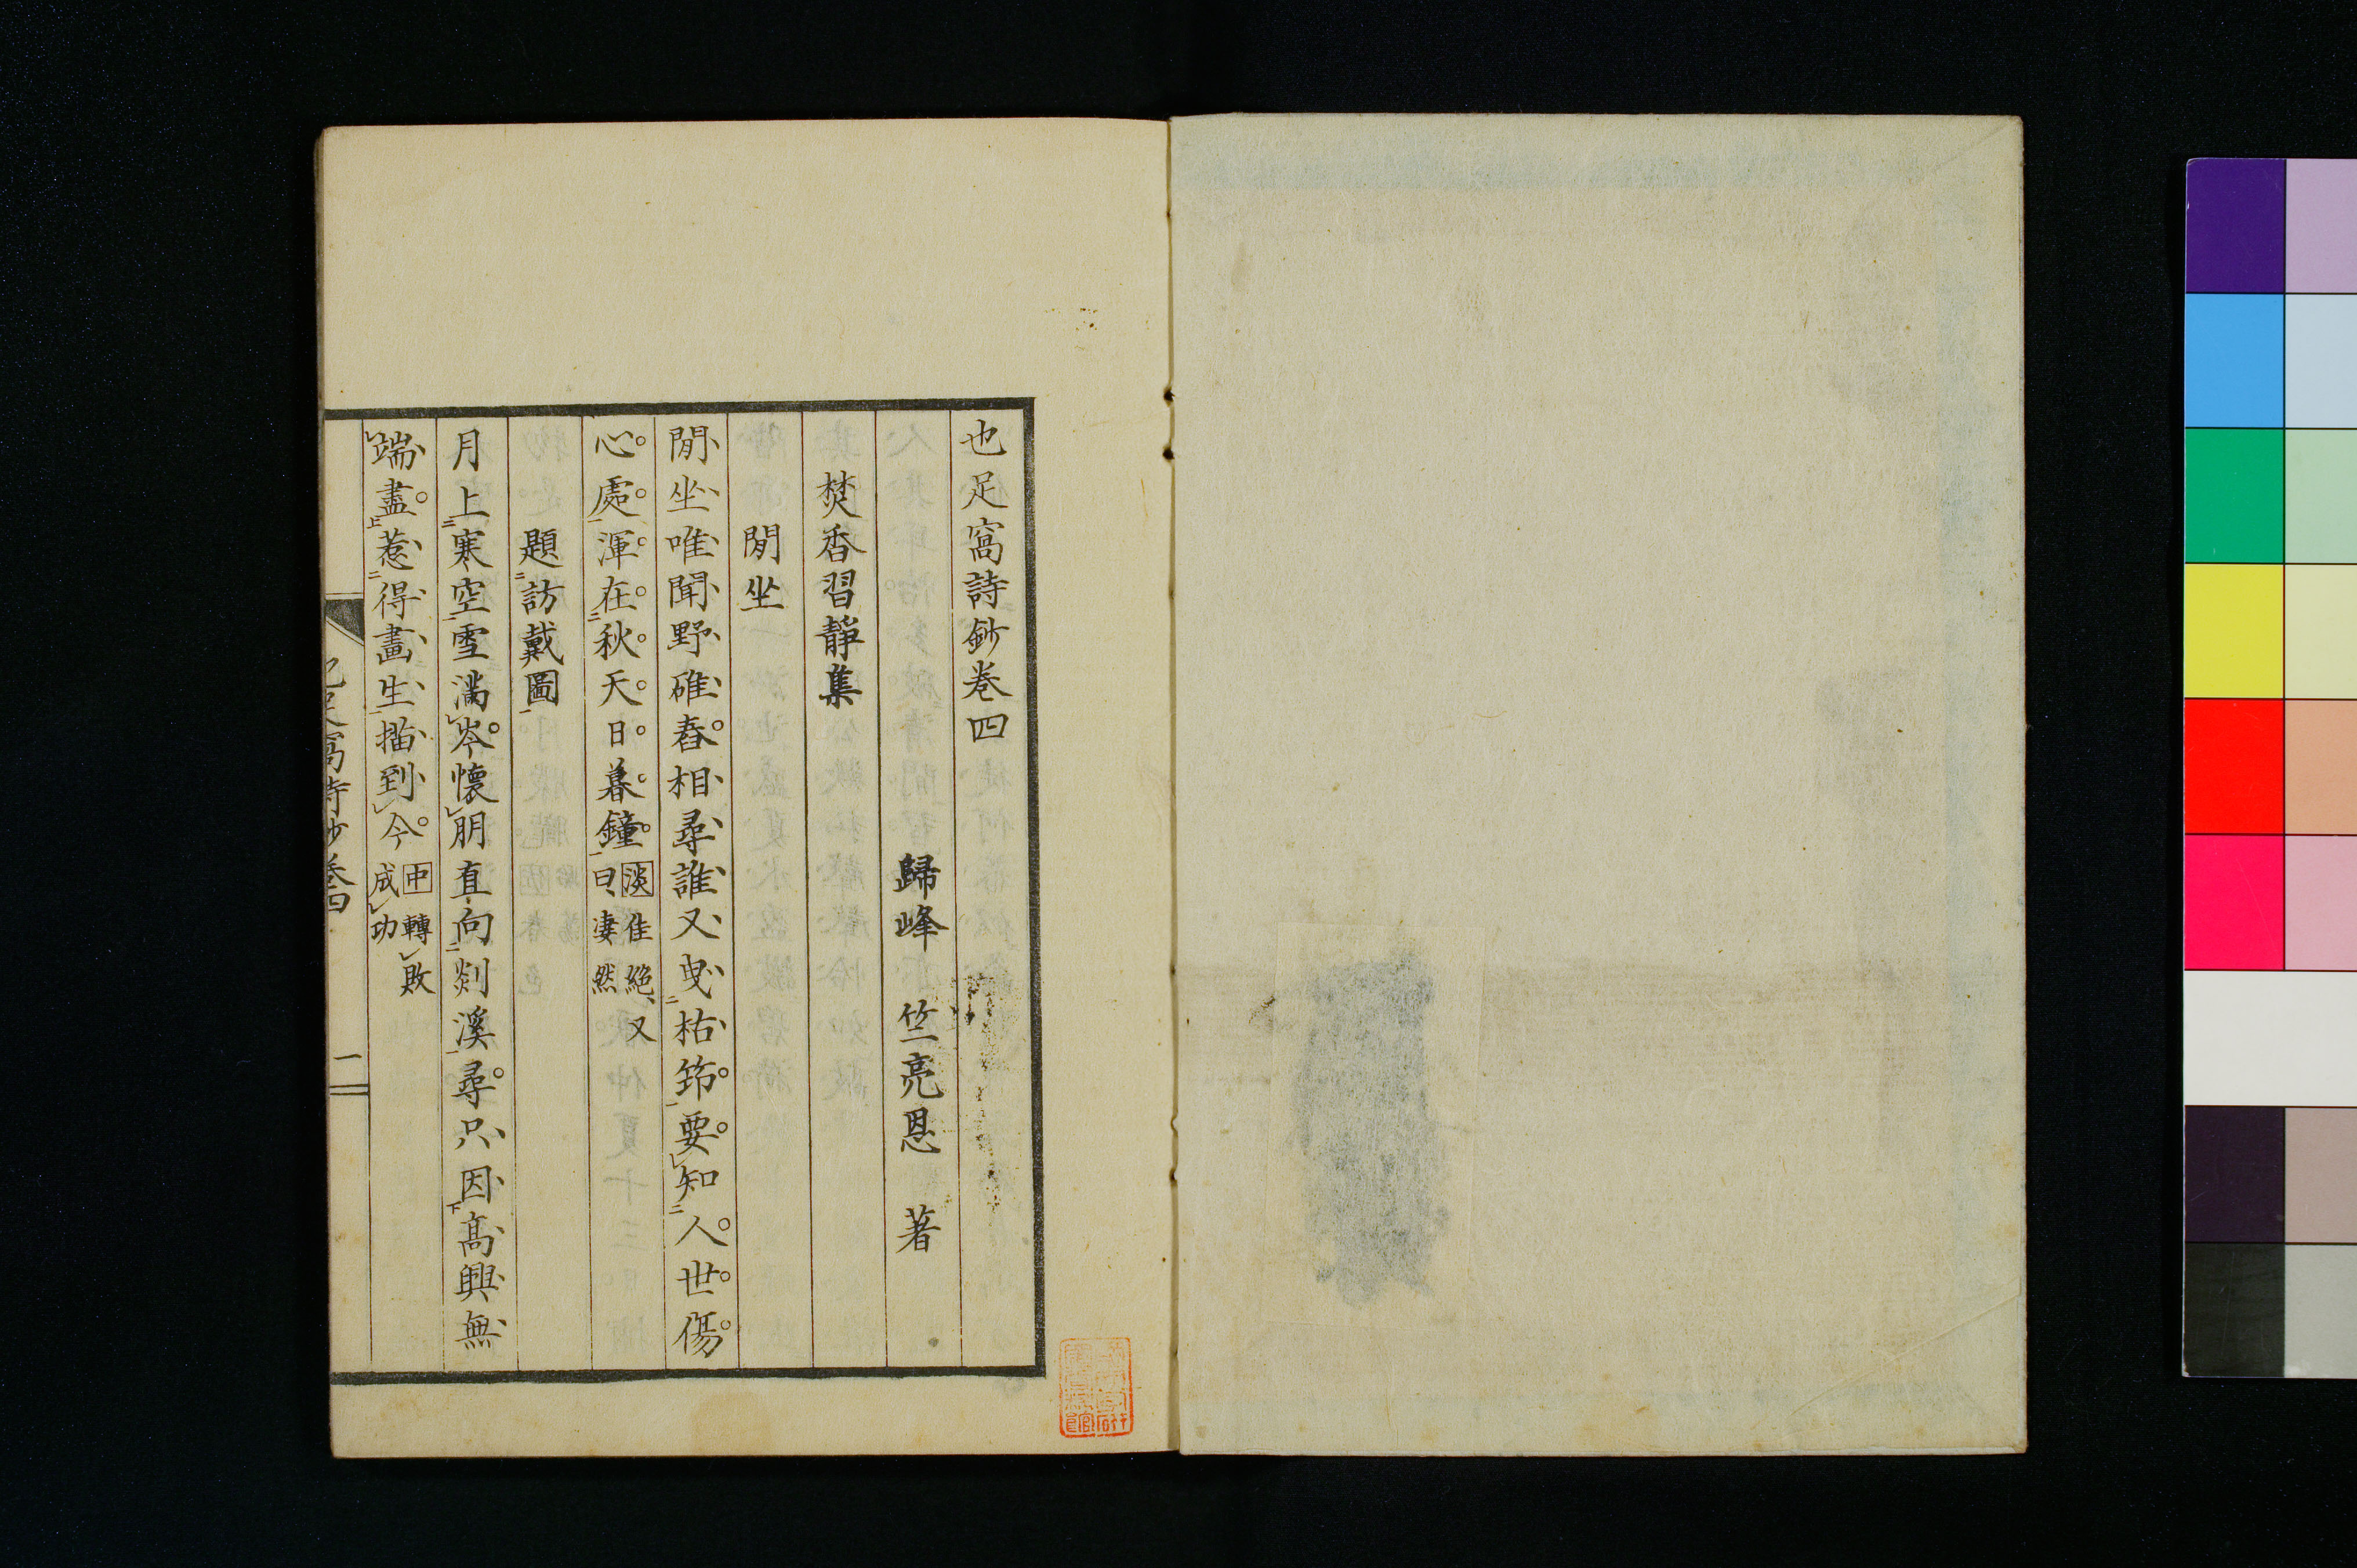 也足窩詩鈔卷四
歸峰 竺亮恩 著
焚香習靜集
閒坐
閒坐唯聞野碓舂相尋誰又曳枯筇要知人世傷
心處渾在秋天日暮鐘淡佳絕又
曰凄然
題訪戴圖
月上寒空雪滿岑懷朋直向剡溪尋只因高興無
端盡惹得畫生描到今中轉敗
成功
也足窩詩鈔卷四
一